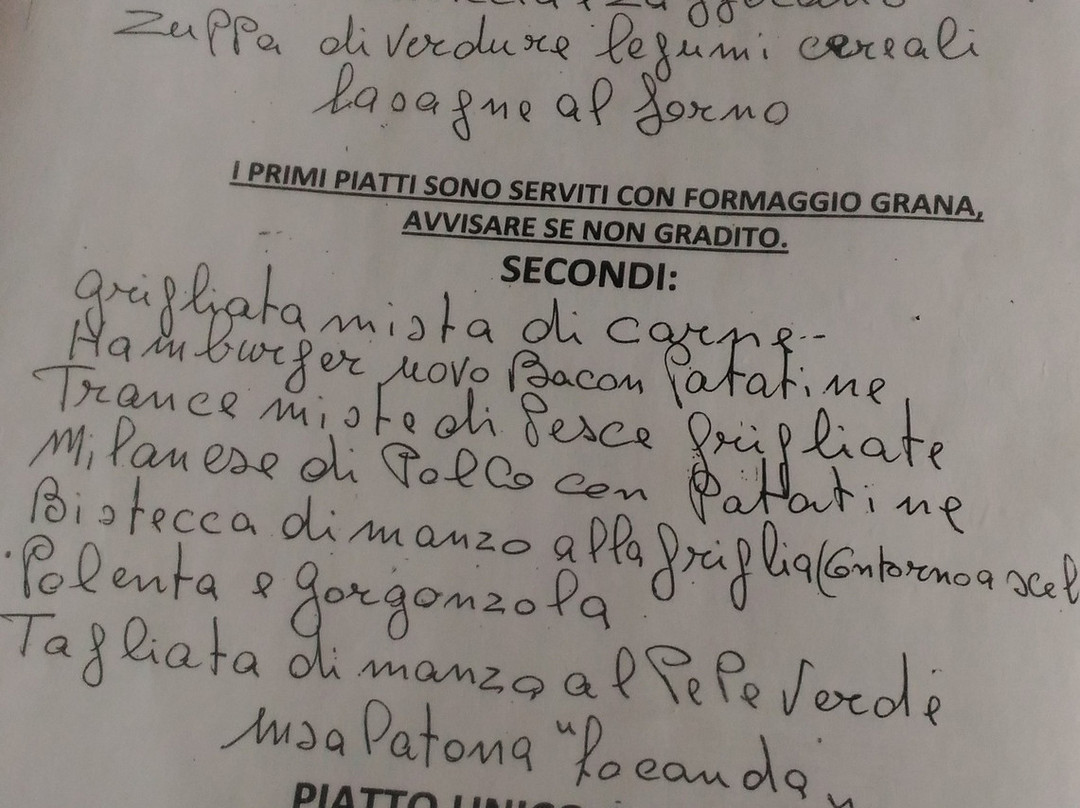 Zuppa di verdure legumi cereali
lasagne al forno
I PRIMI PIATTI SONO SERVITI CON FORMAGGIO GRANA,
AVVISARE SE NON GRADITO.
SECONDI:
grigliata mista di carne
Hamburger uovo Bacon Patatine
Trance miste di Pesce grigliate
Milanese di Pollo con Patatine
Bistecca di manzo alla griglia (Contorno a scel
Polenta e gorgonzola
Tagliata di manzo al Pepe Verde
insalatona "locanda"
PIATTO UNICO